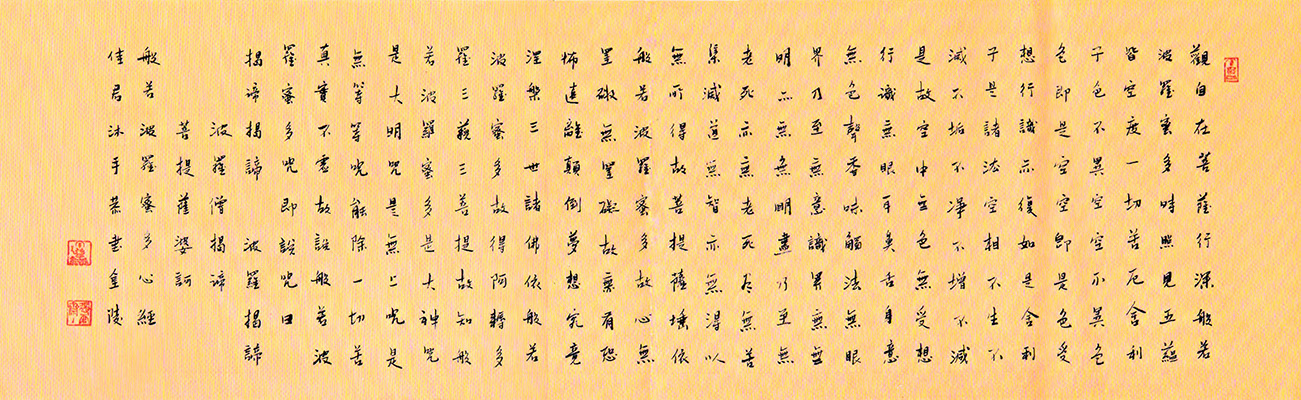 觀自在菩薩行深般若
波羅蜜多時照見五蘊
皆空度一切苦厄舍利
子色不異空空不異色
色即是空空即是色受
想行識亦復如是舍利
子是諸法空相不生不
滅不垢不淨不增不減
是故空中無色無受想
行識無眼耳鼻舌身意
無色聲香味觸法無眼
界乃至無意識界無無
明亦無無明盡乃至無
老死亦無老死盡無苦
集滅道無智亦無得以
無所得故菩提薩埵依
般若波羅蜜多故心無
罣礙無罣礙故無有恐
怖遠離顛倒夢想究竟
涅槃三世諸佛依般若
波羅蜜多故得阿耨多
羅三藐三菩提故知般
若波羅蜜多是大神呪
是大明呪是無上呪是
無等等呪能除一切苦
真實不虛故說般若波
羅蜜多呪即說呪曰
揭諦揭諦 波羅揭諦
波羅僧揭諦
菩提薩婆訶
般若波羅蜜多心經
佳君沐手恭書皇陵